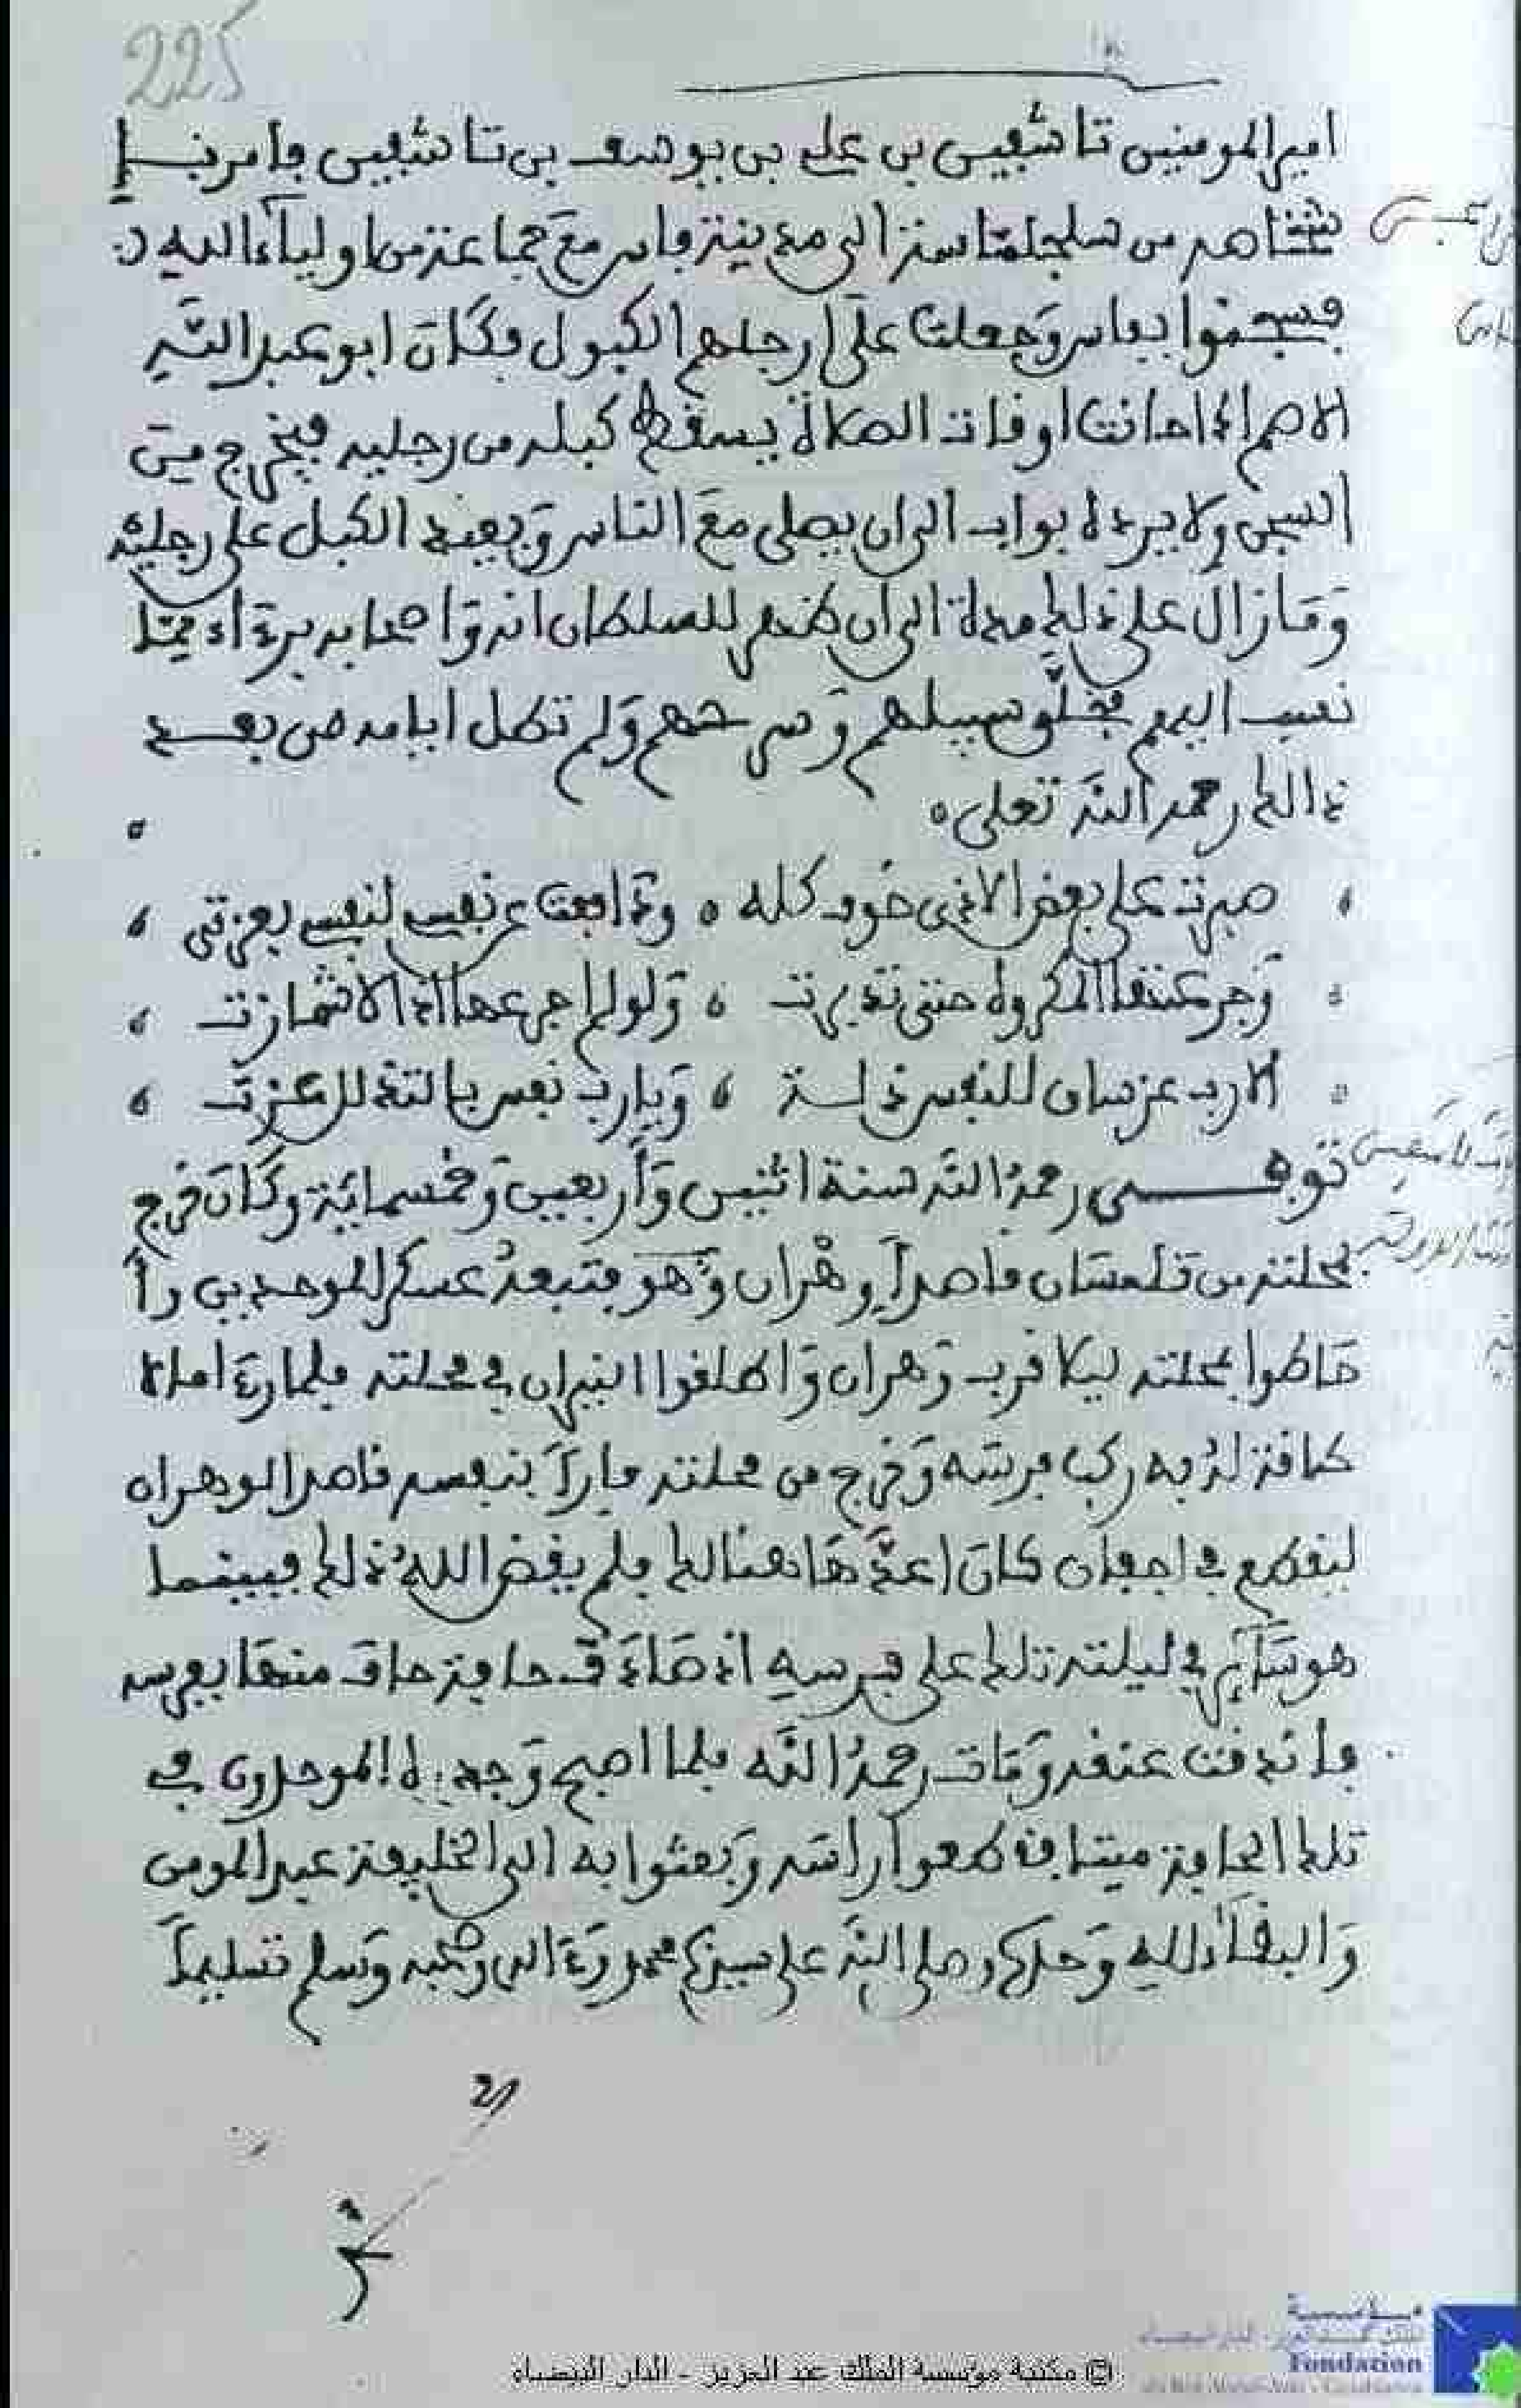 225
امير المومنين تاشفين بن علي بن يوسف بن تاشفين فامر با
شخاصه من سلجلماسة الى مدينة فاس مع جماعة من اولياء الله
فسجنوا بفاس وجعلت على ارجلهم الكبول فكان ابو عبد الله
الاصم اذا حانت اوقات الصلاة يسقط كبله من رجليه فيخرج من
السجن ولا يرده بواب الى ان يصلي مع الناس ويعيد الكبل على رجليه
وما زال على ذلك مدة الى ان ظهر للسلطان انه واصحابه برءاء مما
نسب اليهم فخلى سبيلهم وسرحهم ولم تطل ايامه من بعد
ذالك رحمه الله تعلى
صبرت على بعض الاذى خوف كله ه ودافعت عن نفسي لنفسي بعزتي
وجرعتها المكروه حتى تدبرت ، ولو لم اجرعها اذا لاشمازت
الا رب عز ساق للنفس ذلة ، ويا رب نفس بالتذلل عزت
توفي رحمه الله سنة اثنين واربعين وخمسمائة وكان خرج
بمحلته من تلمسان قاصدا وهران وهو يتبعه عسكر الموحدين وا
حاطوا بمحلته ليلا قرب وهران واطلقوا النيران في محلته فلما رءا ما لا
طاقة له به ركب فرسه وخرج من محلته فارا بنفسه قاصدا لوهران
ليقطع في اجفان كان اعدها هنالك فلم يقض الله ذلك فبينما
هو سائر في ليلته تلك على فرسه اذ صادف حافة حاف منها بفرسه
فاندقت عنقه ومات رحمه الله فلما اصبح وجده الموحدون في
تلك الحافة ميتا فقطعوا راسه وبعثوا به الى الخليفة عبد المومن
والبقاء لله وحده وصلى الله على سيدنا محمد وءاله وصحبه وسلم تسليما
© مكتبة مؤسسة الملك عبد العزيز - الدار البيضاء
مؤسسة
Fondation